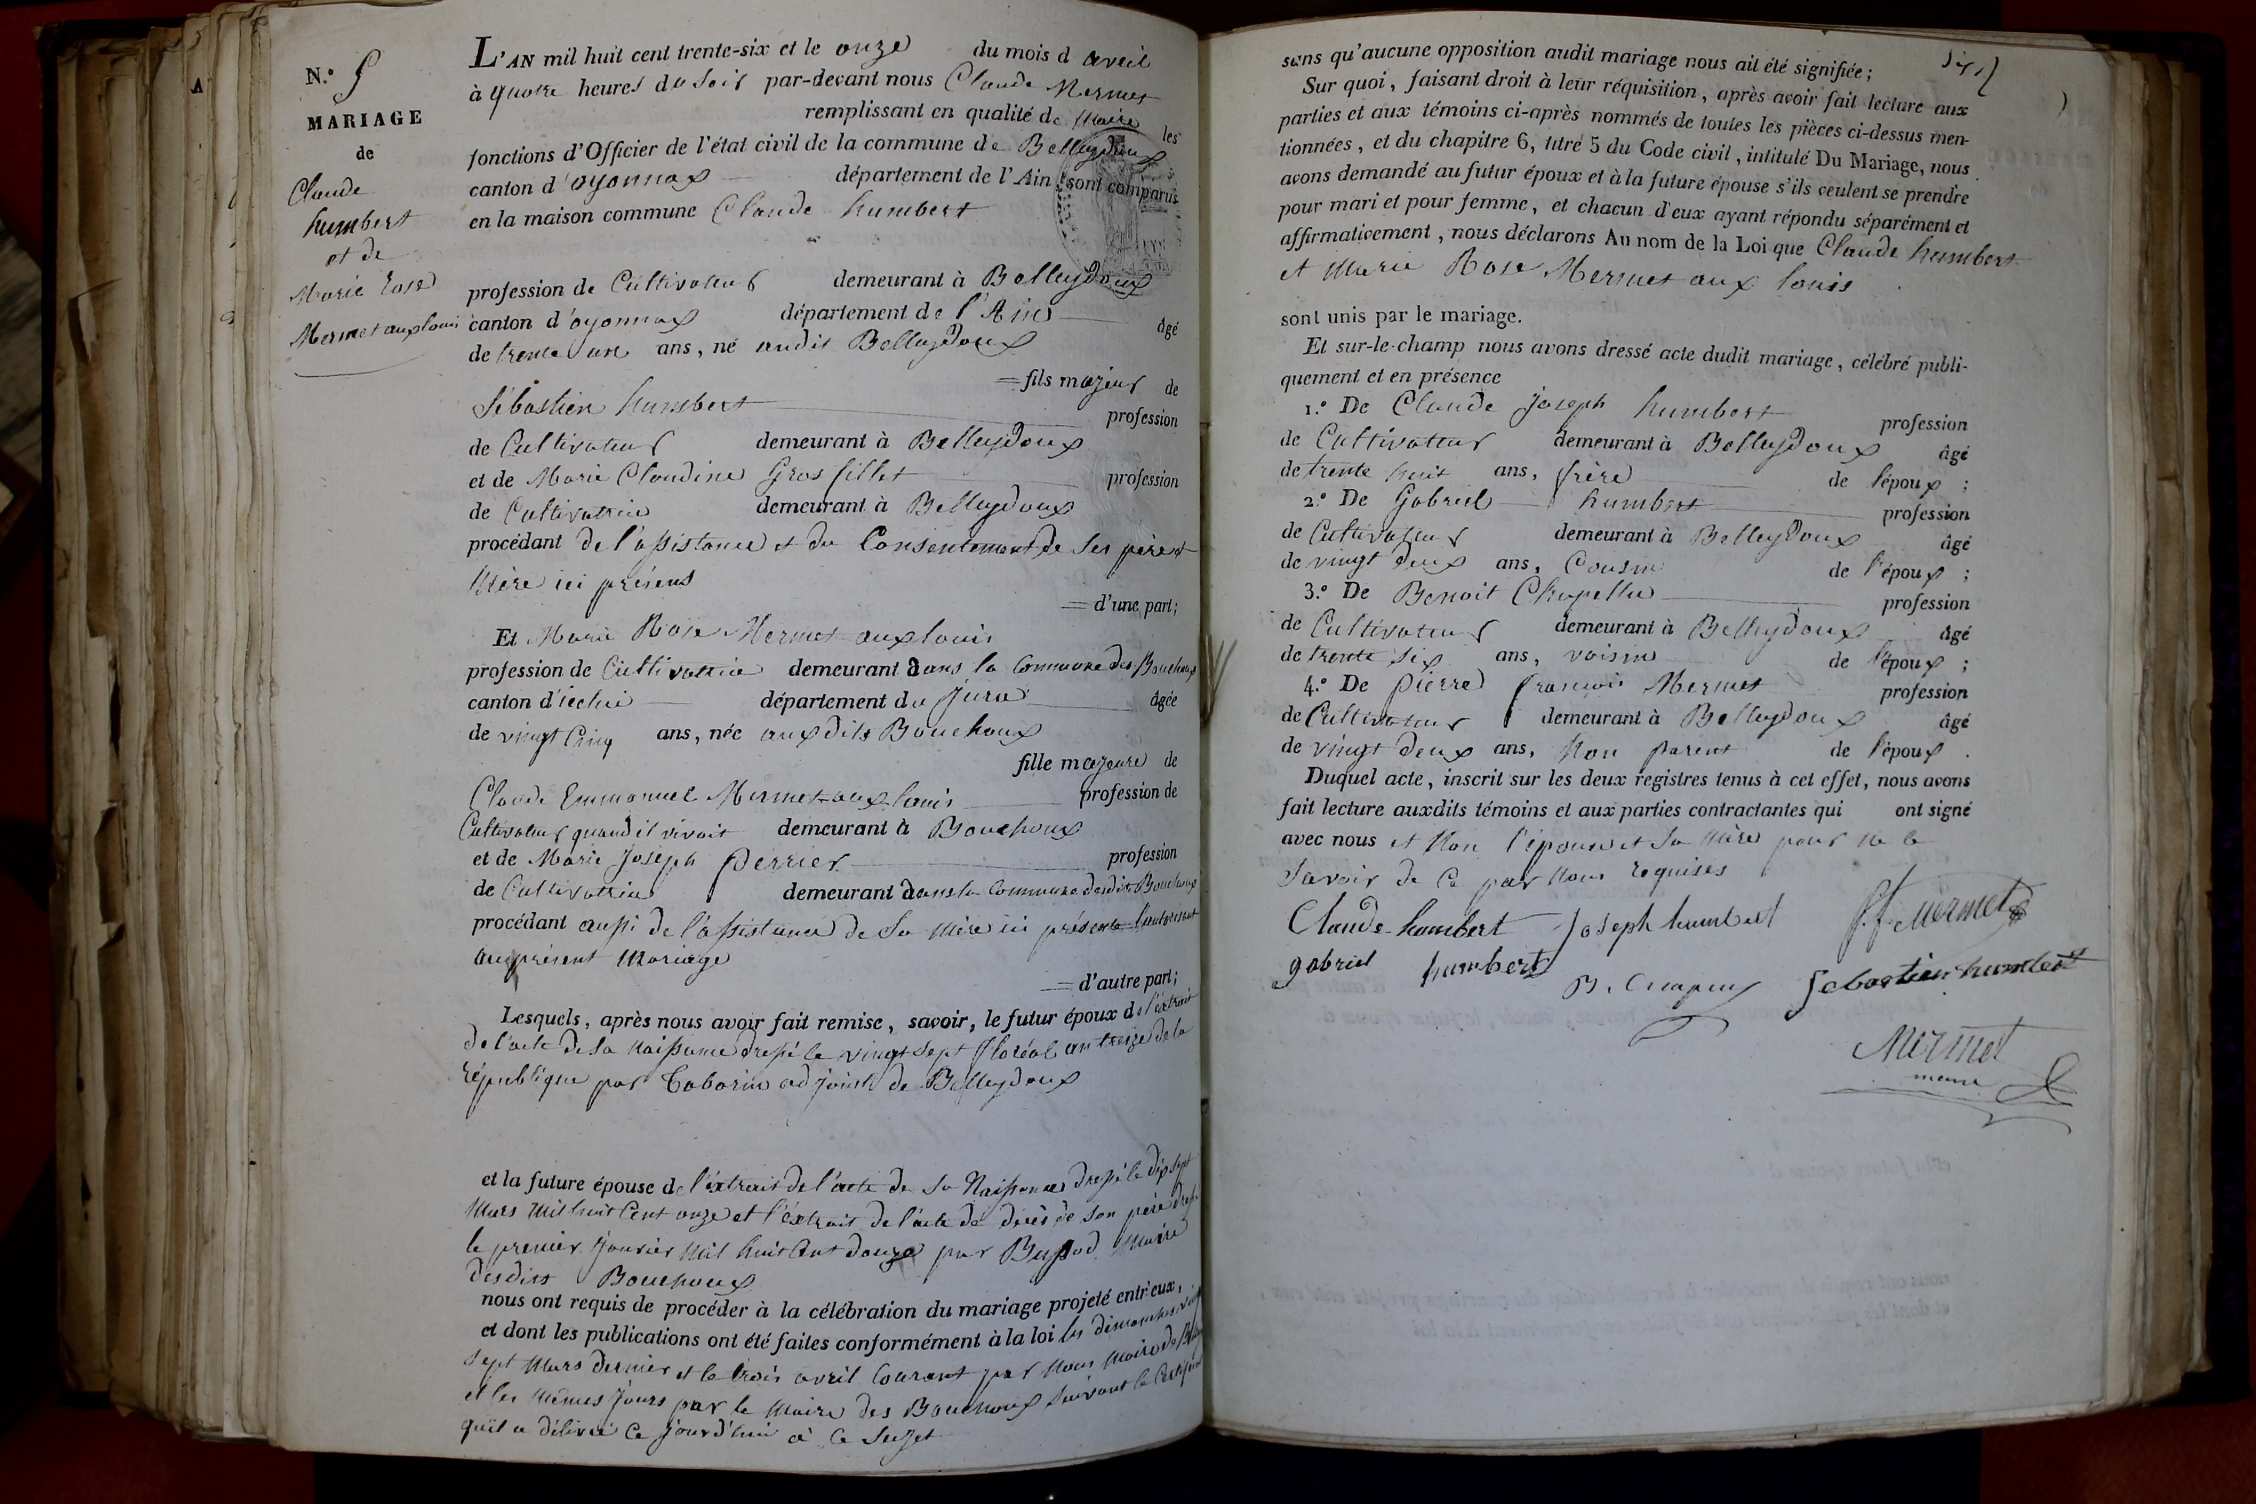 N.° 5
MARIAGE
de
Claude
humbert
et de
Marie Rose
Mermet aux louis
L'AN mil huit cent trente-six et le onze du mois d avril
à quatre heures du soir par-devant nous Claude Mermet
remplissant en qualité de Maire les
fonctions d'Officier de l'état civil de la commune de Belleydoux
canton d'oyonnax département de l'Ain sont comparus
en la maison commune Claude humbert
profession de Cultivateur demeurant à Belleydoux
canton d'oyonnax département de l'Ain âgé
de trente un ans, né audit Belleydoux
fils majeur de
Sébastien humbert profession
de Cultivateur demeurant à Belleydoux
et de Marie Claudine Gros fillet profession
de Cultivatrice demeurant à Belleydoux
procédant de l'assistance et du Consentement de ses père et
Mère ici présens
d'une part;
Et Marie Rose Mermet aux louis
profession de Cultivatrice demeurant dans la Commune des Bouchoux
canton d' département du Jura âgée
de vingt Cinq ans, née aux dits Bouchoux
fille majeure de
Claude Emmanuel Mermet-aux-louis profession de
Cultivateur quand il vivait demeurant à Bouchoux
et de Marie Joseph perrier profession
de Cultivatrice demeurant dans la Commune desdits Bouchoux
procédant aussi de l'assistance de Sa Mère ici présente
au présent Mariage
d'autre part;
Lesquels, après nous avoir fait remise, savoir, le futur époux de l'extrait
de l'acte de Sa Naissance dressé le vingt sept floréal an treize de la
république par Taborin adjoint de Belleydoux
et la future épouse de l'extrait de l'acte de Sa Naissance dressé le dix sept
Mars Mil huit Cent onze et l'extrait de l'acte de décès de son père dressé
le premier Janvier Mil huit Cent douze par Bussod Maire
desdits Bouchoux
nous ont requis de procéder à la célébration du mariage projeté entr'eux,
et dont les publications ont été faites conformément à la loi les dimanches vingt
sept Mars dernier et le trois avril Courant par Nous Maire de
et les Mêmes Jours par le Maire des Bouchoux Suivant le Certificat
qu'il a délivré Ce Jourd'hui à Ce Sujet
sans qu'aucune opposition audit mariage nous ait été signifiée;
Sur quoi, faisant droit à leur réquisition, après avoir fait lecture aux
parties et aux témoins ci-après nommés de toutes les pièces ci-dessus men-
tionnées, et du chapitre 6, titre 5 du Code civil, intitulé Du Mariage, nous
avons demandé au futur époux et à la future épouse s'ils veulent se prendre
pour mari et pour femme, et chacun d'eux ayant répondu séparément et
affirmativement, nous déclarons Au nom de la Loi que Claude humbert
et Marie Rose Mermet aux louis
sont unis par le mariage.
Et sur-le-champ nous avons dressé acte dudit mariage, célébré publi-
quement et en présence
1.° De Claude Joseph humbert profession
de Cultivateur demeurant à Belleydoux âgé
de trente huit ans, frère de l'époux ;
2.° De Gabriel humbert profession
de Cultivateur demeurant à Belleydoux âgé
de vingt deux ans, Cousin de l'époux ;
3.° De Benoit Chapellu profession
de Cultivateur demeurant à Belleydoux âgé
de trente six ans, voisin de l'époux ;
4.° De pierre françois Mermet profession
de Cultivateur demeurant à Belleydoux âgé
de vingt deux ans, Non parent de l'époux .
Duquel acte, inscrit sur les deux registres tenus à cet effet, nous avons
fait lecture auxdits témoins et aux parties contractantes qui ont signé
avec nous et Non l'épouse et Sa Mère pour ne le
Savoir de Ce par Nous requises
Claude humbert Joseph humbert P. f. Mermet
gabriel humbert B. Sebastien humbert
Mermet
maire